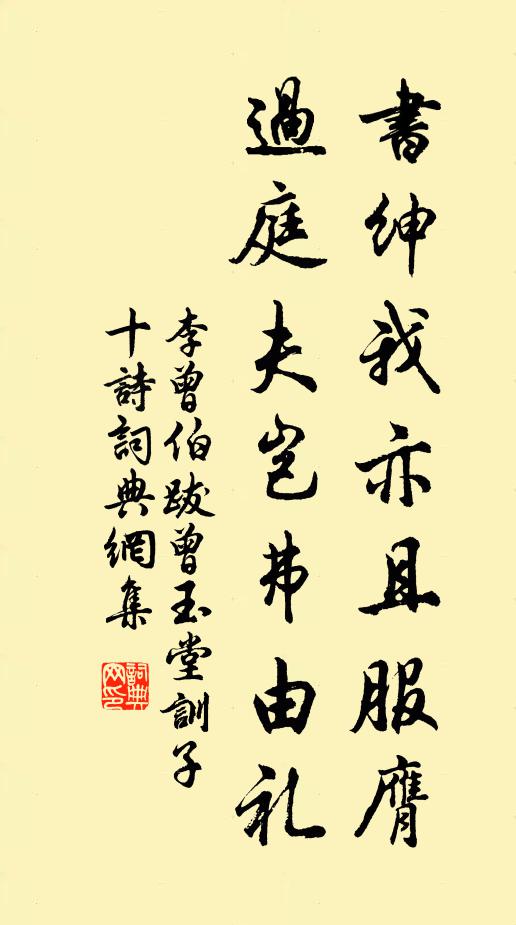 書紳我亦且服膺
過庭夫豈弗由礼
李曾伯跋曾玉堂訓子
十詩詞典網集
詞典
网印